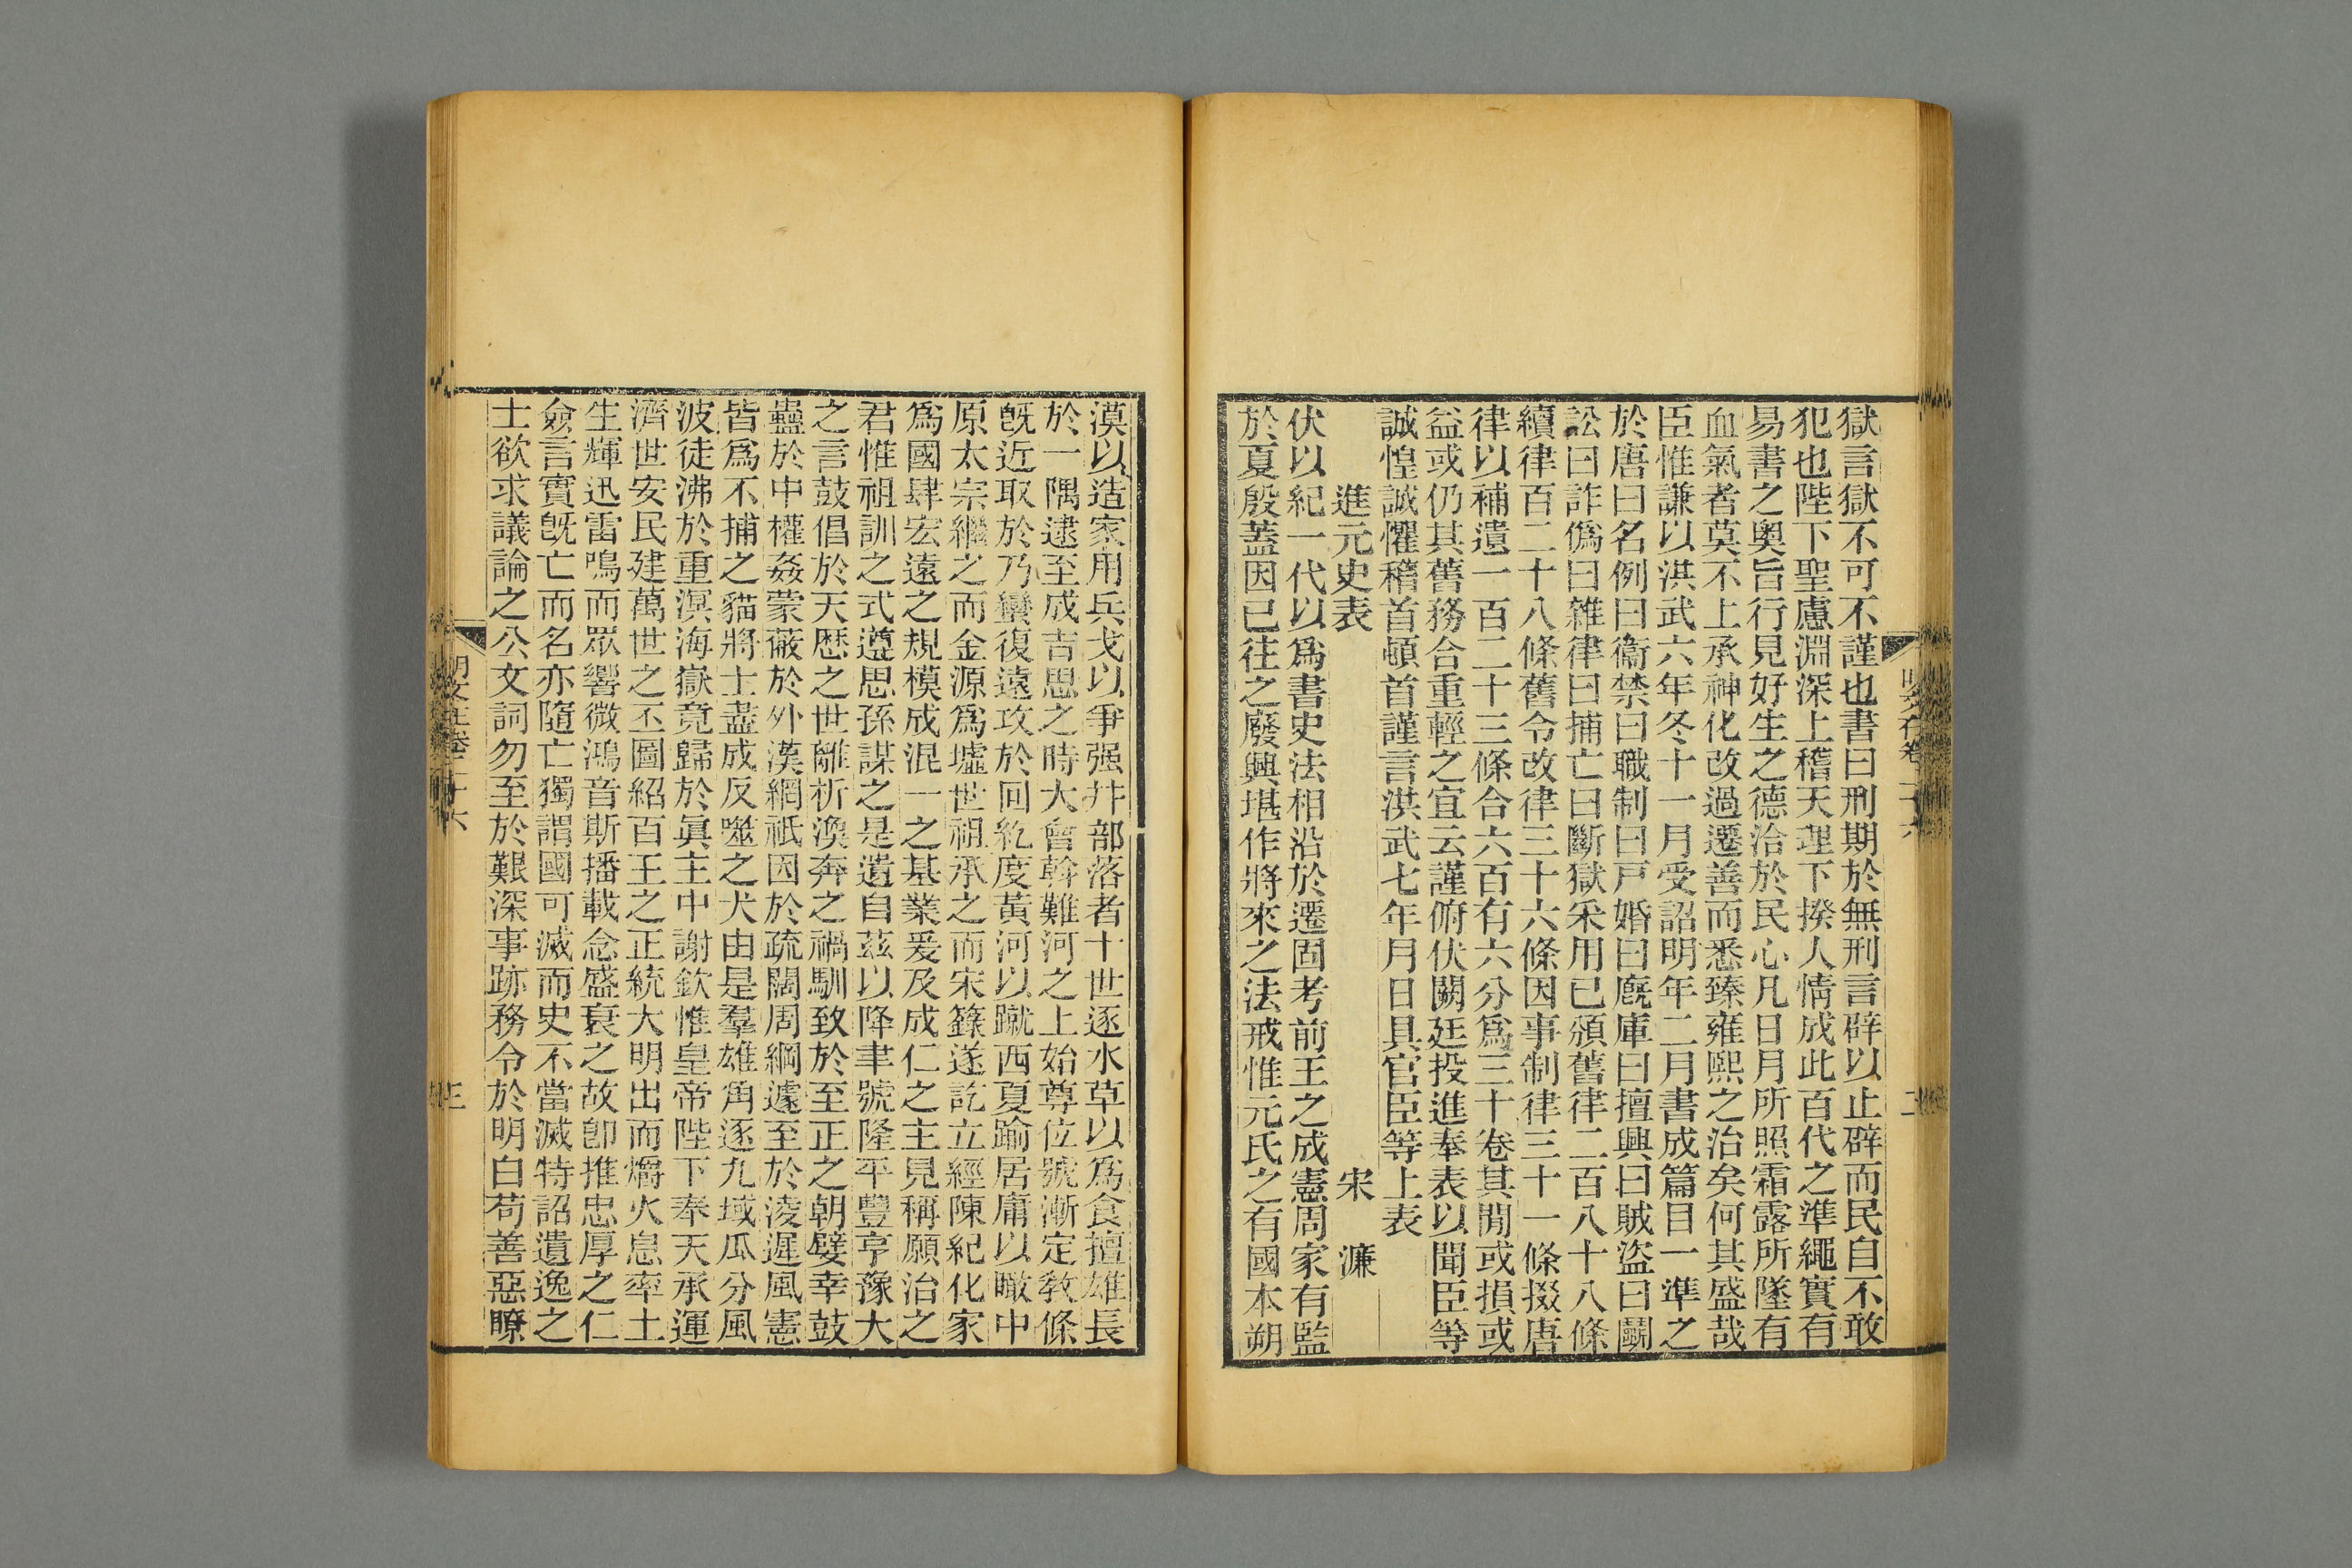 獄言獄不可不謹也書曰刑期於無刑言辟以止辟而民自不敢
犯也陛下聖慮淵深上稽天理下揆人情成此百代之準繩實有
易書之奧旨行見好生之德洽於民心凡日月所照霜露所墜有
血氣者莫不上承神化改過遷善而悉臻雍熙之治矣何其盛哉
臣惟謙以洪武六年冬十一月受詔明年二月書成篇目一準之
於唐曰名例曰衞禁曰職制曰戸婚曰廐庫曰擅興曰賊盜曰鬭
訟曰詐僞曰雜律曰捕亡曰斷獄采用已頒舊律二百八十八條
續律百二十八條舊令改律三十六條因事制律三十一條掇唐
律以補遺一百二十三條合六百有六分爲三十卷其閒或損或
益或仍其舊務合重輕之宜云謹俯伏闕廷投進奉表以聞臣等
誠惶誠懼稽首頓首謹言洪武七年月日具官臣等上表
進元史表 宋 濂
伏以紀一代以爲書史法相沿於遷固考前王之成憲周家有監
於夏殷蓋因已往之廢興堪作將來之法戒惟元氏之有國本朔
明文在卷二十六
二
漠以造家用兵戈以爭强幷部落者十世逐水草以爲食擅雄長
於一隅逮至成吉思之時大會斡難河之上始尊位號漸定敎條
旣近取於乃蠻復遠攻於回紇度黃河以蹴西夏踰居庸以瞰中
原太宗繼之而金源爲墟世祖承之而宋籙遂訖立經陳紀化家
爲國肆宏遠之規模成混一之基業爰及成仁之主見稱願治之
君惟祖訓之式遵思孫謀之是遺自茲以降聿號隆平豐亨豫大
之言鼓倡於天歴之世離析渙奔之禍馴致於至正之朝嬖幸鼓
蠱於中權姦蒙蔽於外漢網祇因於疏闊周綱遽至於淩遲風憲
皆爲不捕之貓將士盡成反噬之犬由是羣雄角逐九域瓜分風
波徒沸於重溟海嶽竟歸於眞主中謝欽惟皇帝陛下奉天承運
濟世安民建萬世之丕圖紹百王之正統大明出而爝火息率土
生輝迅雷鳴而眾響微鴻音斯播載念盛衰之故卽推忠厚之仁
僉言實旣亡而名亦隨亡獨謂國可滅而史不當滅特詔遺逸之
士欲求議論之公文詞勿至於艱深事跡務令於明白苟善惡瞭
明文在卷二十六
三